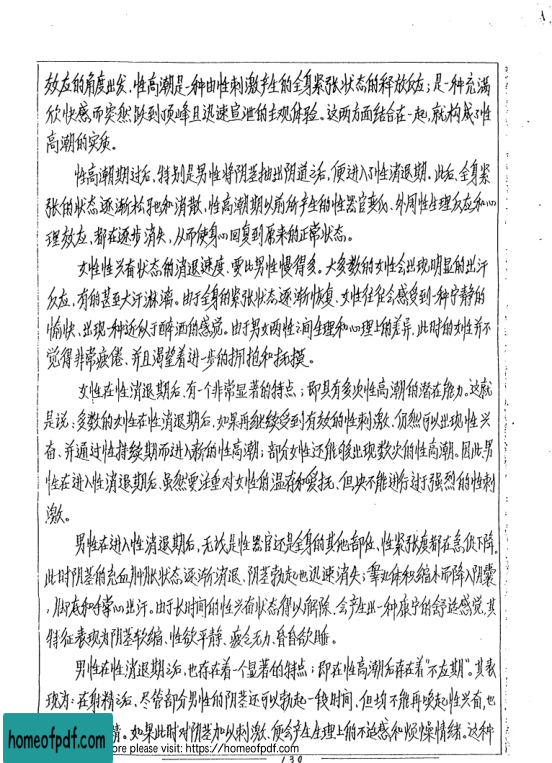 效应的角度出发、性高潮是一种由性刺激产生的全身紧张状态的释放反应；是一种充满
欣快感而突然跃到顶峰且迅速宣泄的主观体验。这两方面结合在一起，就构成了性
高潮的实质。
性高潮期过后，特别是男性将阴茎抽出阴道之后，便进入了性消退期。此后、全身紧
张的状态逐渐松弛和消散，性高潮期以前所产生的性器官变化、外周性生理反应和心
理效应，都在逐步消失，从而使身心回复到原来的正常状态。
女性性兴奋状态的消退速度、要比男性慢得多。大多数的女性会出现明显的出汗
反应，有的甚至大汗淋漓。由于全身的紧张状态逐渐恢复、女性往往会感受到一种宁静的
愉快、出现一种近似于醉酒的感觉。由于男女两性之间生理和心理上的差异，此时的女性并不
觉得非常疲倦、并且渴望着进一步的拥抱和抚摸。
女性在性消退期后、有一个非常显著的特点；即具有多次性高潮的潜在能力。这就
是说：多数的女性在性消退期后、如果再继续受到有效的性刺激、仍然可以出现性兴
奋、并通过性持续期而进入新的性高潮；部分女性还能够出现数次的性高潮。因此男
性在进入性消退期后、虽然要注重对女性的温存和爱抚、但决不能进行过于强烈的性刺
激。
男性在进入性消退期后，无论是性器官还是全身的其他部位、性紧张度都在急促下降。
此时阴茎的充血肿胀状态逐渐消退、阴茎勃起也迅速消失；睾丸体积缩小而降入阴囊
，脚底和手掌心出汗。由于长时间的性兴奋状态得以解除、会产生出一种康宁的舒适感觉，其
特征表现为阴茎软缩、性欲平静、疲乏无力、昏昏欲睡。
男性在性消退期之后，也存在着一个显著的特点；即在性高潮后存在着“不应期”。其表
现为：在射精之后、尽管部分男性的阴茎还可以勃起一段时间、但均不能再唤起性兴奋，也
情。如果此时对阴茎加以刺激、便会产生生理上的不适感和烦燥情绪。这种
homeofpdf.com
ore please visit: https://homeofpdf.com
130